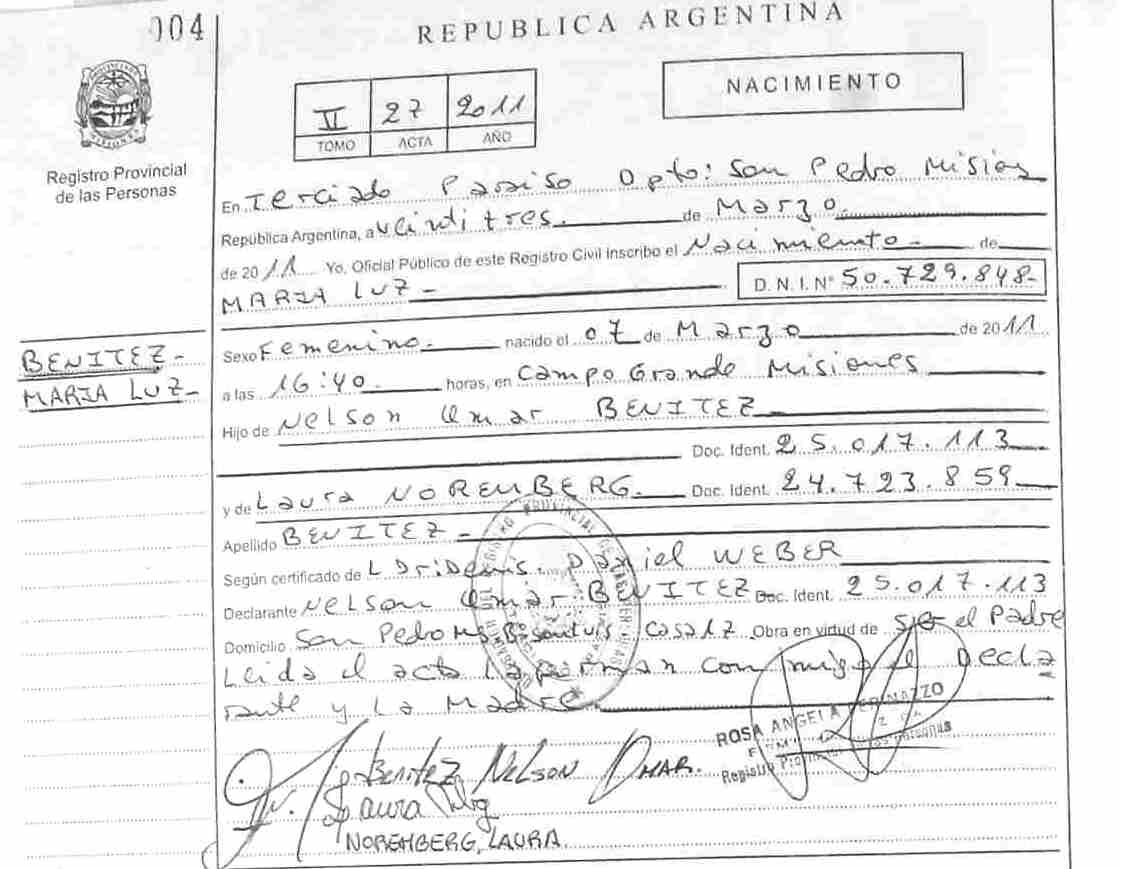 004
REPUBLICA ARGENTINA
II 27 2011
TOMO ACTA AÑO
NACIMIENTO
Registro Provincial
de las Personas
En Terciado Paraiso Dpto: San Pedro Mision
República Argentina, a Veinditres. de Marzo.
de 2011 Yo, Oficial Público de este Registro Civil inscribo el Nacimiento de
MARIA LUZ - D.N.I. Nº 50.729.848-
BENITEZ-
MARIA LUZ-
Sexo Femenino. nacido el 07 de Marzo de 2011
a las 16:40 horas, en Campo Grande Misiones
Hijo de Nelson Omar BENITEZ
Doc. Ident. 25.017.113
y de Laura NOREMBERG. Doc. Ident. 24.723.859
Apellido BENITEZ -
Según certificado de Dr: Denis. Daniel WEBER
Declarante Nelson Omar BENITEZ Doc. Ident. 25.017.113
Domicilio San Pedro Ms. Bº San Luis Casa 17 Obra en virtud de ser el Padre
Leida el acta la firman conmigo el Decla
rante y La Madre.
ROSA ANGELA
Registro Provincial de las Personas
Benitez Nelson Omar.
Laura
NOREMBERG, LAURA.